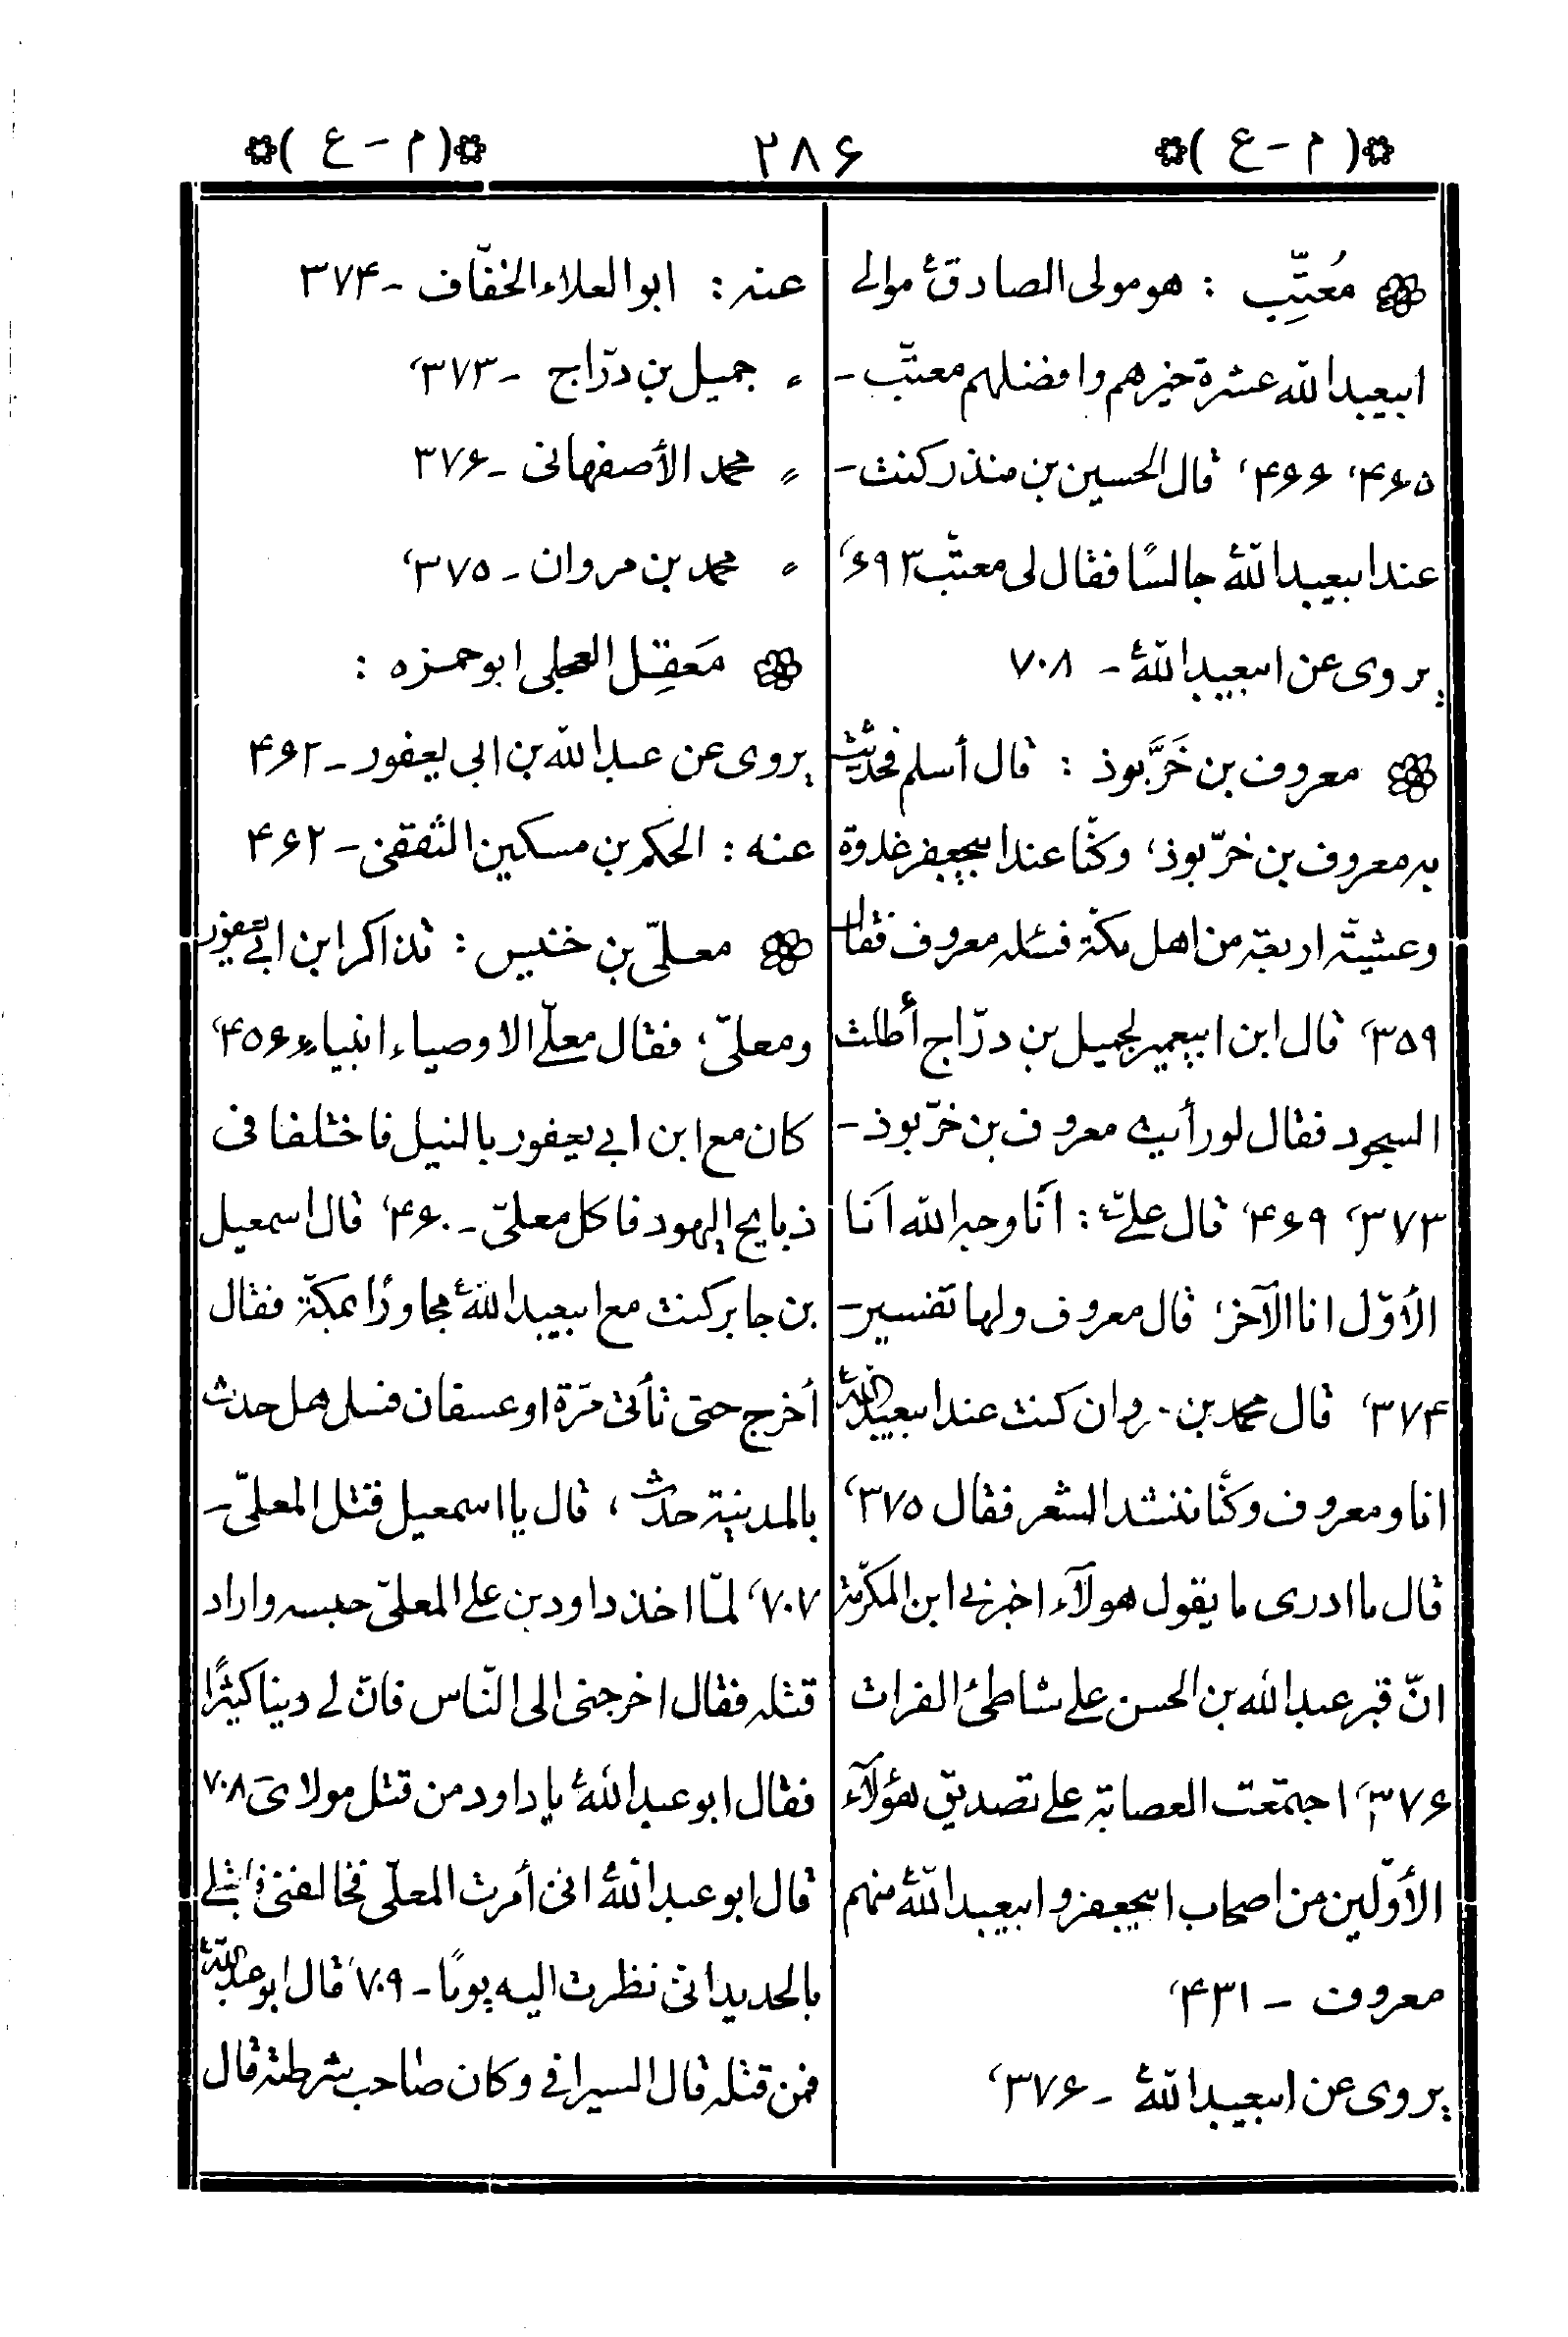 (م - ع) ۲۸۶ (م - ع)
مُعتِّب : هو مولى الصادقؑ موالى
ابیعبدالله عشرة خيرهم وافضلهم معتّب -
۴۶۵، ۴۶۶، قال الحسين بن منذر كنت -
عند ابیعبداللهؑ جالسًا فقال لى معتّب ۶۹۳،
يروى عن ابیعبداللهؑ - ۷۰۸
معروف بن خَرَّبوذ : قال أسلم فحدّثت
به معروف بن خرّبوذ، وكنّا عند ابیجعفر غدوة
وعشيّة اربعة من اهل مكّة فسئله معروف فقال
۳۵۹، قال ابن ابیعمير لجميل بن درّاج أطلت
السجود فقال لو رأيت معروف بن خرّبوذ -
۳۷۳، ۴۶۹، قال علىؑ : أنا وجه الله أنا
الأوّل انا الآخر، قال معروف ولها تفسير -
۳۷۴، قال محمد بن مروان كنت عند ابیعبداللهؑ
انا ومعروف وكنّا ننشد الشعر فقال ۳۷۵،
قال ما ادرى ما يقول هولآء اخبرنى ابن المكرّمة
انّ قبر عبدالله بن الحسن على شاطئ الفرات
۳۷۶، اجتمعت العصابة على تصديق هؤلآء
الأوّلين من اصحاب ابیجعفر و ابیعبداللهؑ منهم
معروف - ۴۳۱،
يروى عن ابیعبداللهؑ - ۳۷۶،
عنه : ابوالعلاء الخفّاف - ۳۷۴
〃 جميل بن درّاج - ۳۷۳،
〃 محمد الأصفهانى - ۳۷۶
〃 محمد بن مروان - ۳۷۵،
مَعقِل العجلى ابوحمزه :
يروى عن عبدالله بن ابى يعفور - ۴۶۲
عنه : الحكم بن مسكين الثقفى - ۴۶۲
معلّى بن خنيس : تذاكر ابن ابى يعفور
ومعلّى، فقال معلّى الاوصياء انبياء، ۴۵۶،
كان مع ابن ابى يعفور بالنيل فاختلفا فى
ذبايح اليهود فاكل معلّى - ۴۶۰، قال اسمعيل
بن جابر كنت مع ابیعبداللهؑ مجاورًا بمكّة فقال
أخرج حتى تأتى مرّة او عسفان فسل هل حدث
بالمدينة حدث، قال يا اسمعيل قتل المعلّى -
۷۰۷، لمّا اخذ داود بن على المعلّى حبسه واراد
قتله فقال اخرجنى الى النّاس فانّ لى دينا كثيرًا
فقال ابو عبداللهؑ يا داود من قتل مولاىَ ۷۰۸
قال ابو عبداللهؑ انى أمرت المعلّى فخالفنى فابتلى
بالحديد انى نظرت اليه يومًا - ۷۰۹، قال ابو عبداللهؑ
فمن قتله قال السيرافى وكان صاحب شرطته قال